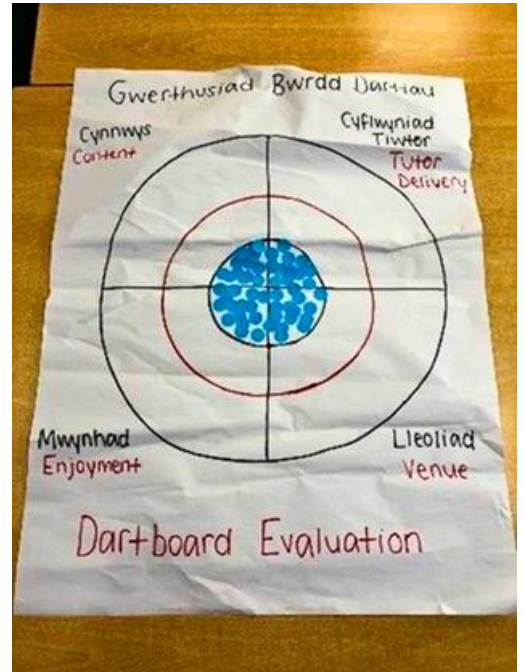 Gwerthusiad Bwrdd Dartiau
Cynnwys
Content
Cyflwyniad
Tiwtor
Tutor
Delivery
Mwynhad
Enjoyment
Lleoliad
Venue
Dartboard Evaluation